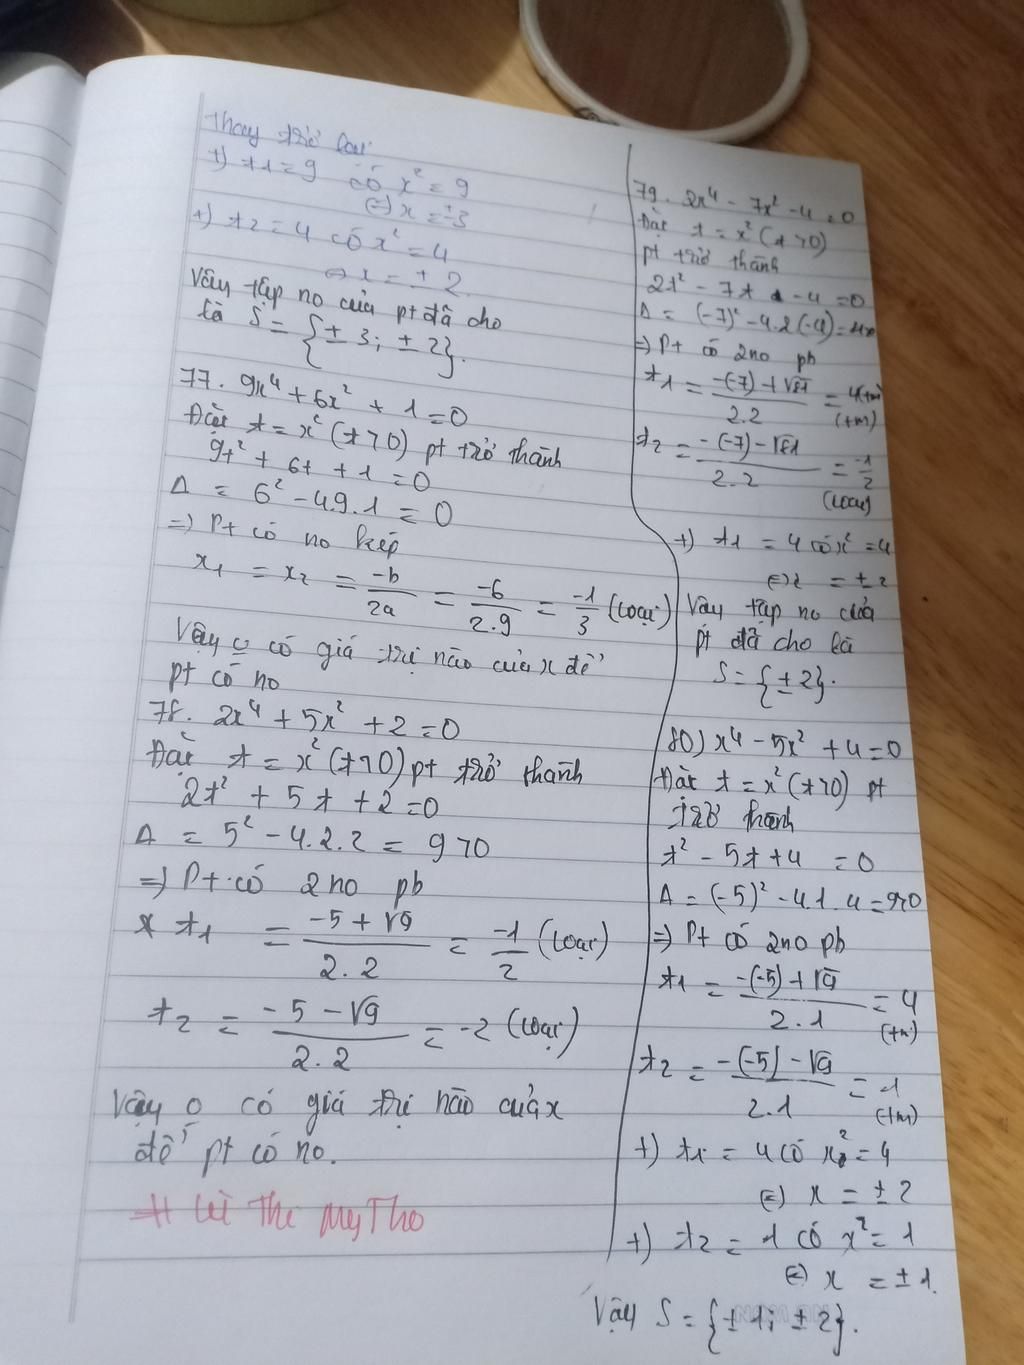 Thay trở lại
+) t1 = 9 có x² = 9
(=) x = ±3
+) t2 = 4 có x² = 4
(=) x = ± 2
Vậy tập no của pt đã cho
là S = {± 3; ± 2}.
77. 9x⁴ + 6x² + 1 = 0
Đặt t = x² (t>0) pt trở thành
9t² + 6t + 1 = 0
Δ = 6² - 4.9.1 = 0
=) Pt có no kép
x1 = x2 = -b/2a = -6/2.9 = -1/3 (loại)
Vậy o có giá trị nào của x để
pt có no
78. 2x⁴ + 5x² + 2 = 0
Đặt t = x² (t>0) pt trở thành
2t² + 5t + 2 = 0
Δ = 5² - 4.2.2 = 9 >0
=) Pt có 2 no pb
t1 = (-5 + √9)/2.2 = -1/2 (loại)
t2 = (-5 - √9)/2.2 = -2 (loại)
Vậy o có giá trị nào của x
để pt có no.
# Lê Thị Mỹ Tho
79. 2x⁴ - 7x² - 4 = 0
Đặt t = x² (t>0)
pt trở thành
2t² - 7t - 4 = 0
Δ = (-7)² - 4.2(-4) =
=) Pt có 2 no pb
t1 = (-(-7) + √81)/2.2 = 4 (tm)
(tm)
t2 = (-(-7) - √81)/2.2 = -1/2
(loại)
+) t1 = 4 có x² = 4
(=) x = ± 2
Vậy tập no của
pt đã cho là
S = {± 2}.
80) x⁴ - 5x² + 4 = 0
Đặt t = x² (t>0) pt
trở thành
t² - 5t + 4 = 0
Δ = (-5)² - 4.1.4 = 9>0
=) Pt có 2 no pb
t1 = (-(-5) + √9)/2.1 = 4
(tm)
t2 = (-(-5) - √9)/2.1 = 1
(tm)
+) t1 = 4 có x² = 4
(=) x = ± 2
+) t2 = 1 có x² = 1
(=) x = ± 1.
Vậy S = {± 1; ± 2}.